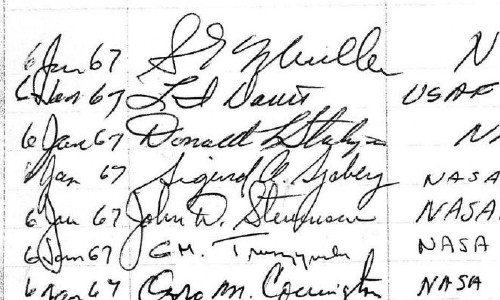 6 Jan 67 N
6 Jan 67 L I Davis USAF
6 Jan 67 Donald NA
Jan 67 Sigurd A. Sjoberg NASA
6 Jan 67 John D. Stevenson NASA
6 Jan 67 G.M. NASA
6 Jan 67 Ozro M. Covington NASA